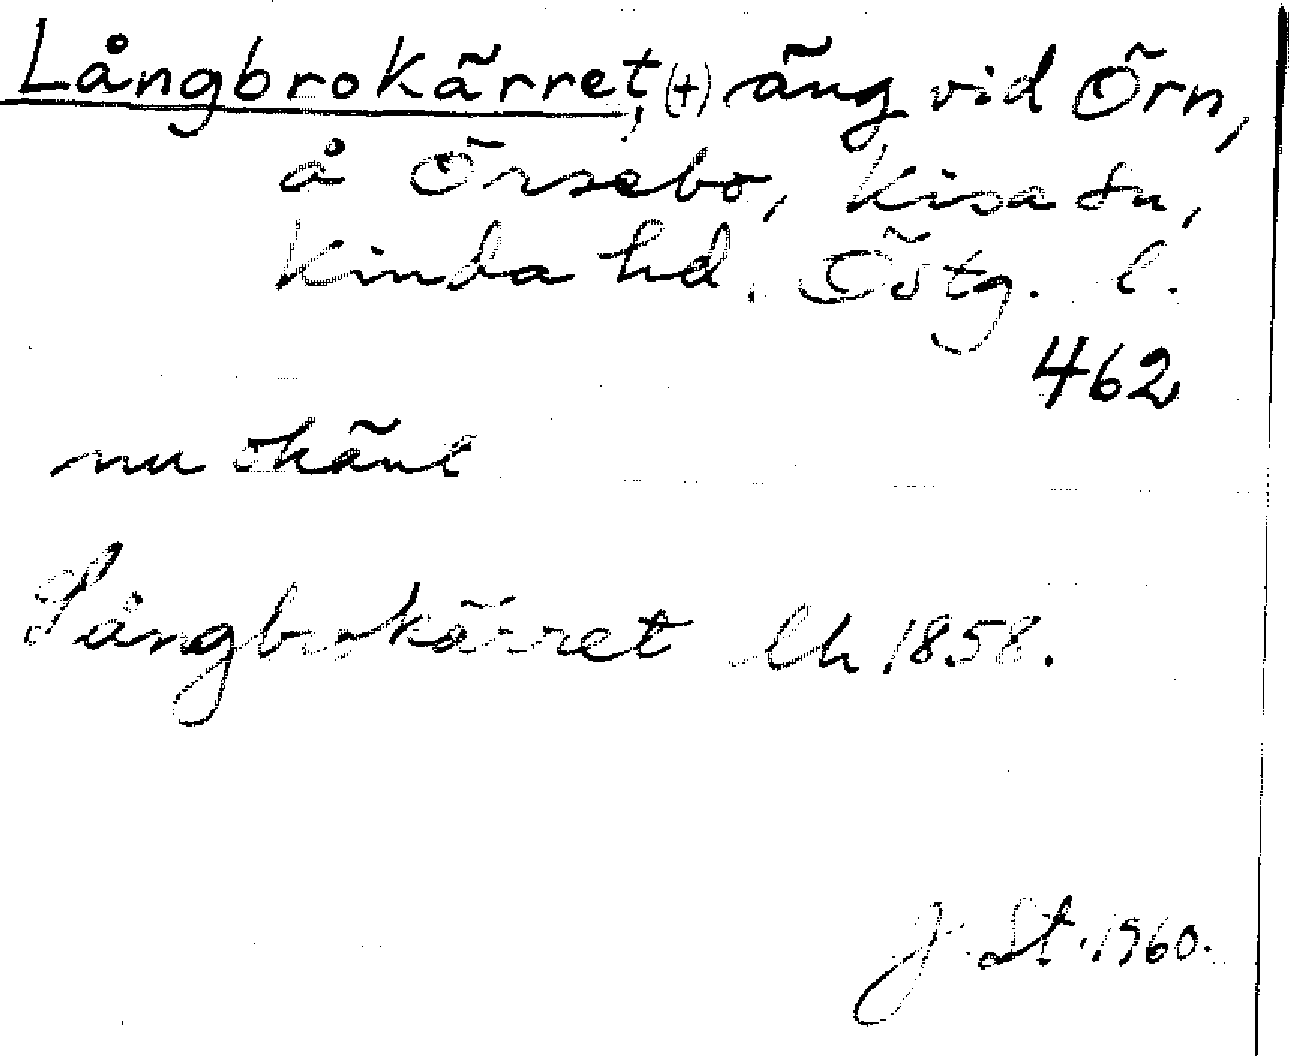 Långbrokärret, (+) äng vid Örn,
å Örsebo, Kisa sn,
Kinda hd. Östg. l.
462
nu okänt
Långbrokärret lh 1858.
J. St. 1960.